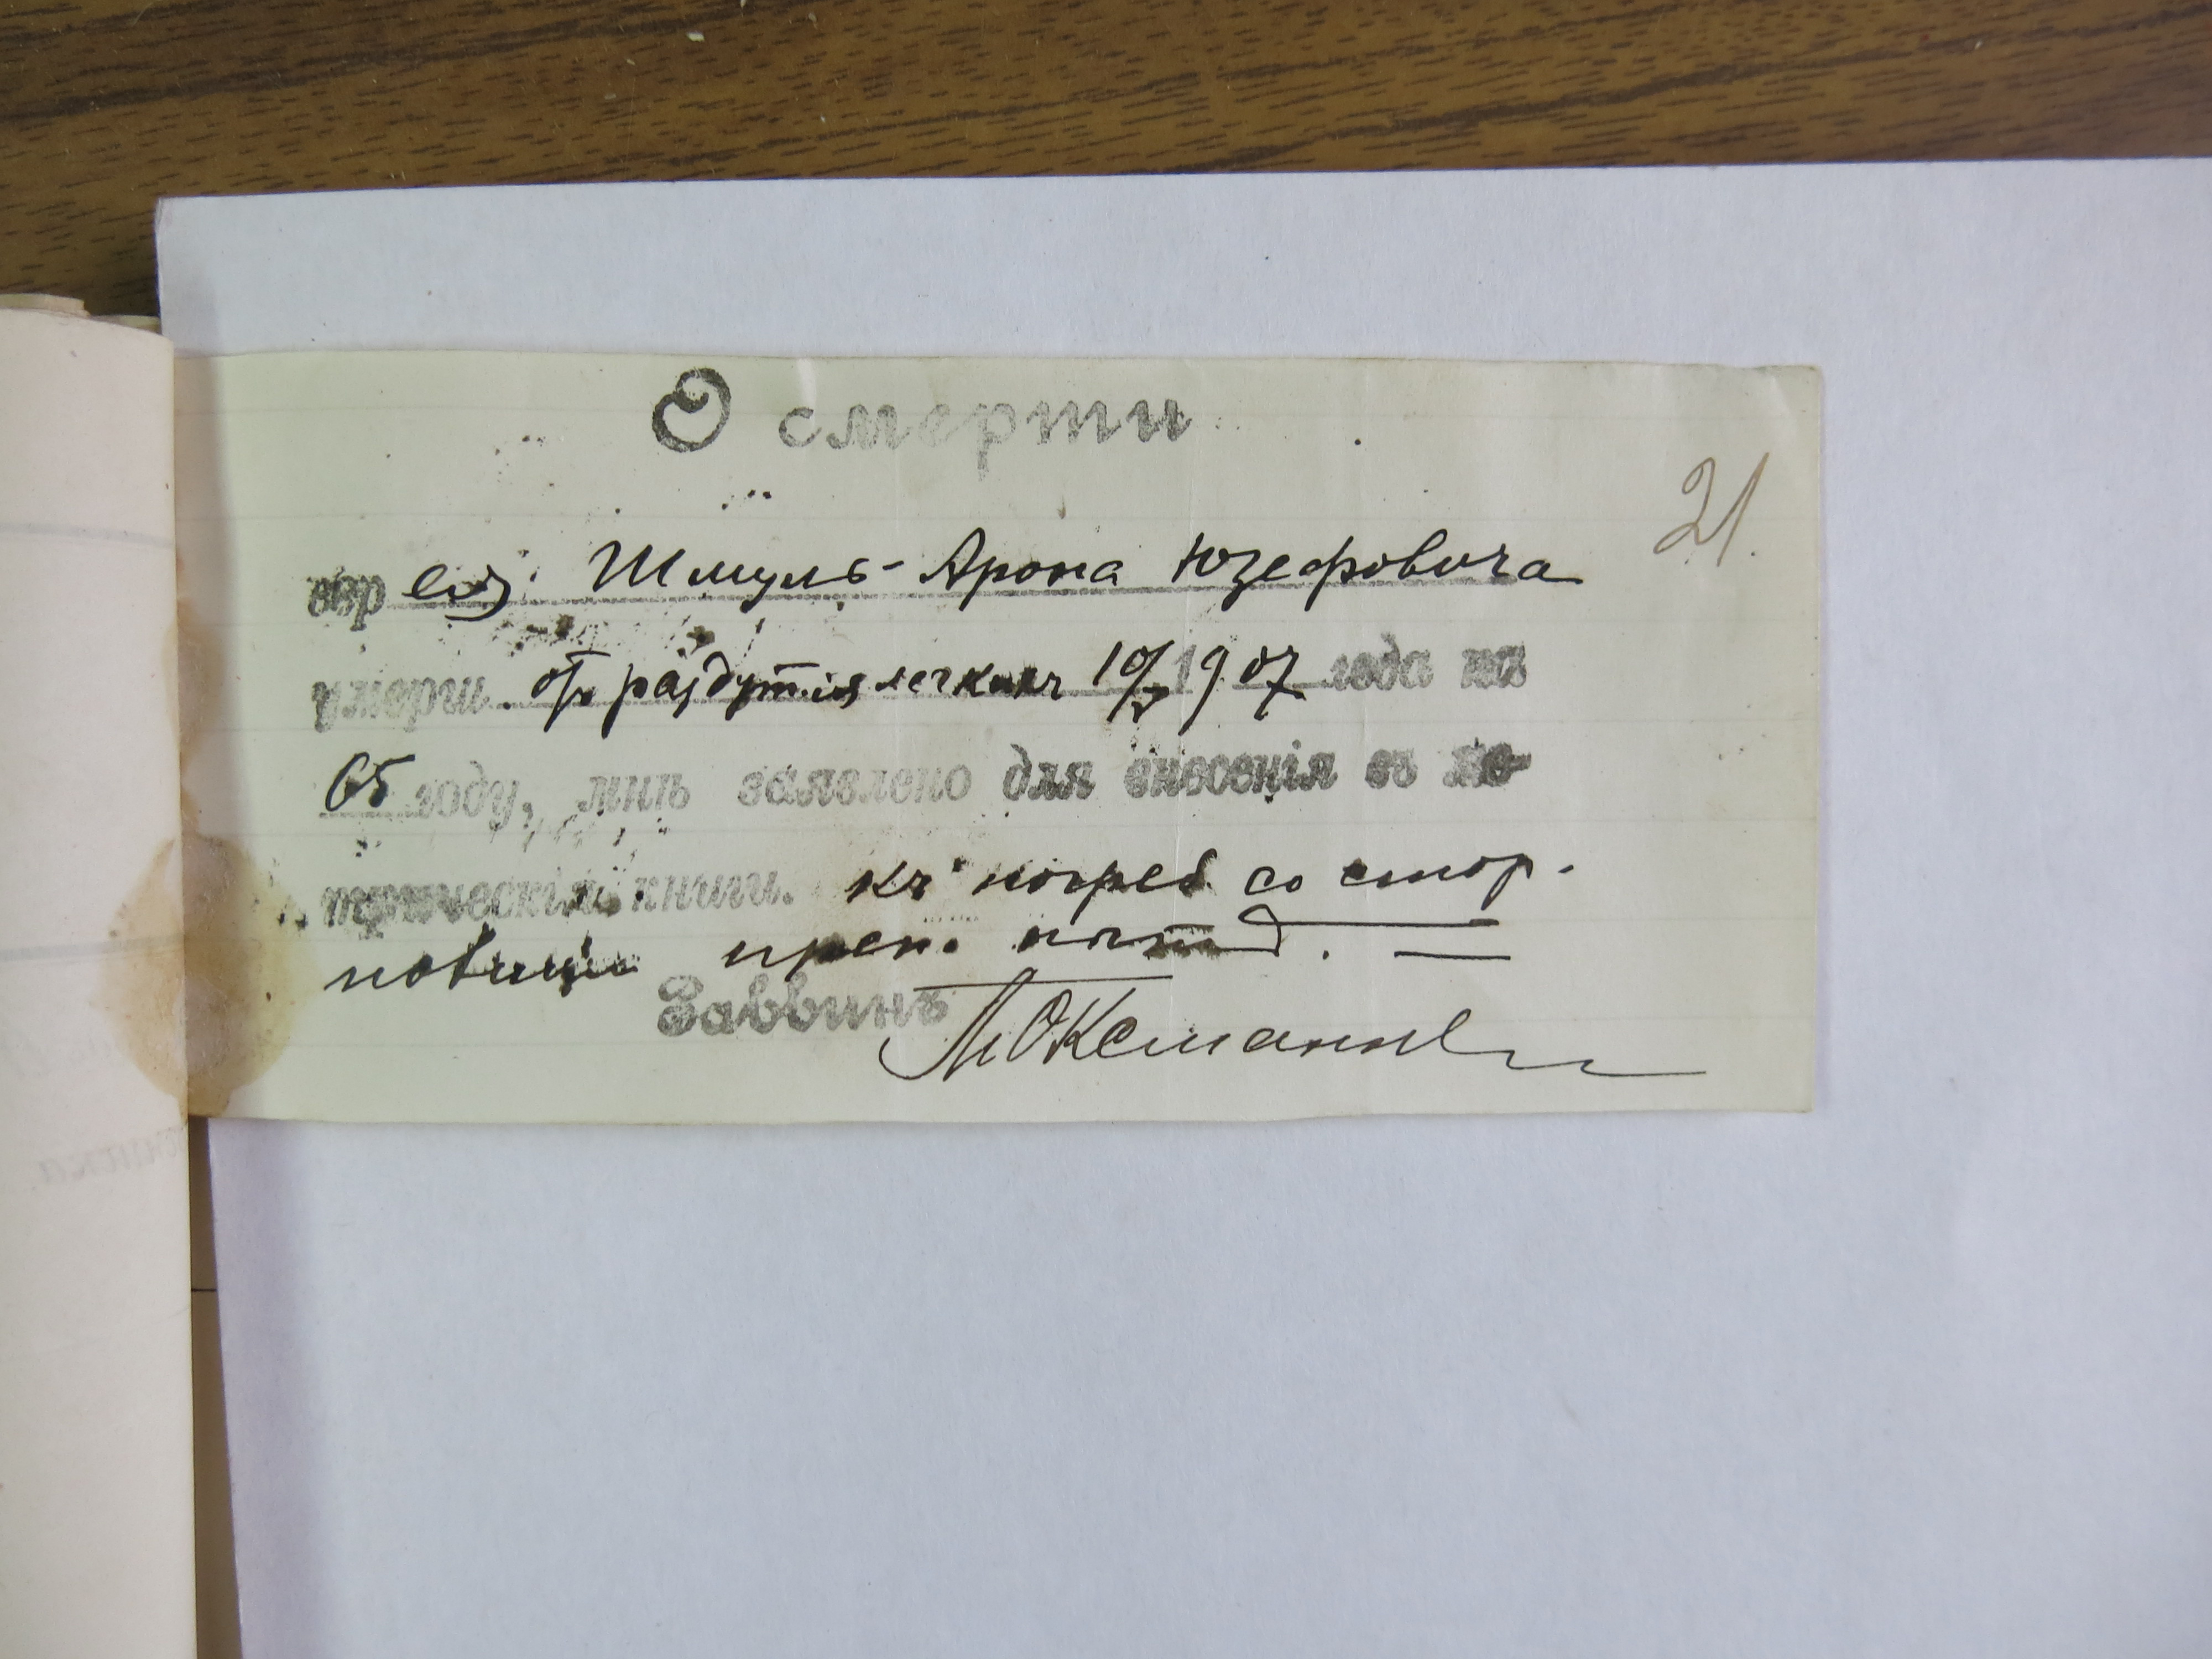 О смерти
21.
евр ея Шмуль-Арона Юзефовича
умерш. отъ раздутія легкихъ 10/V 1907 года на
65 году, мнѣ заявлено для внесенія въ ме-
трическія книги. къ погреб. со стор.
полиціи преп. нѣтъ.
Раввинъ